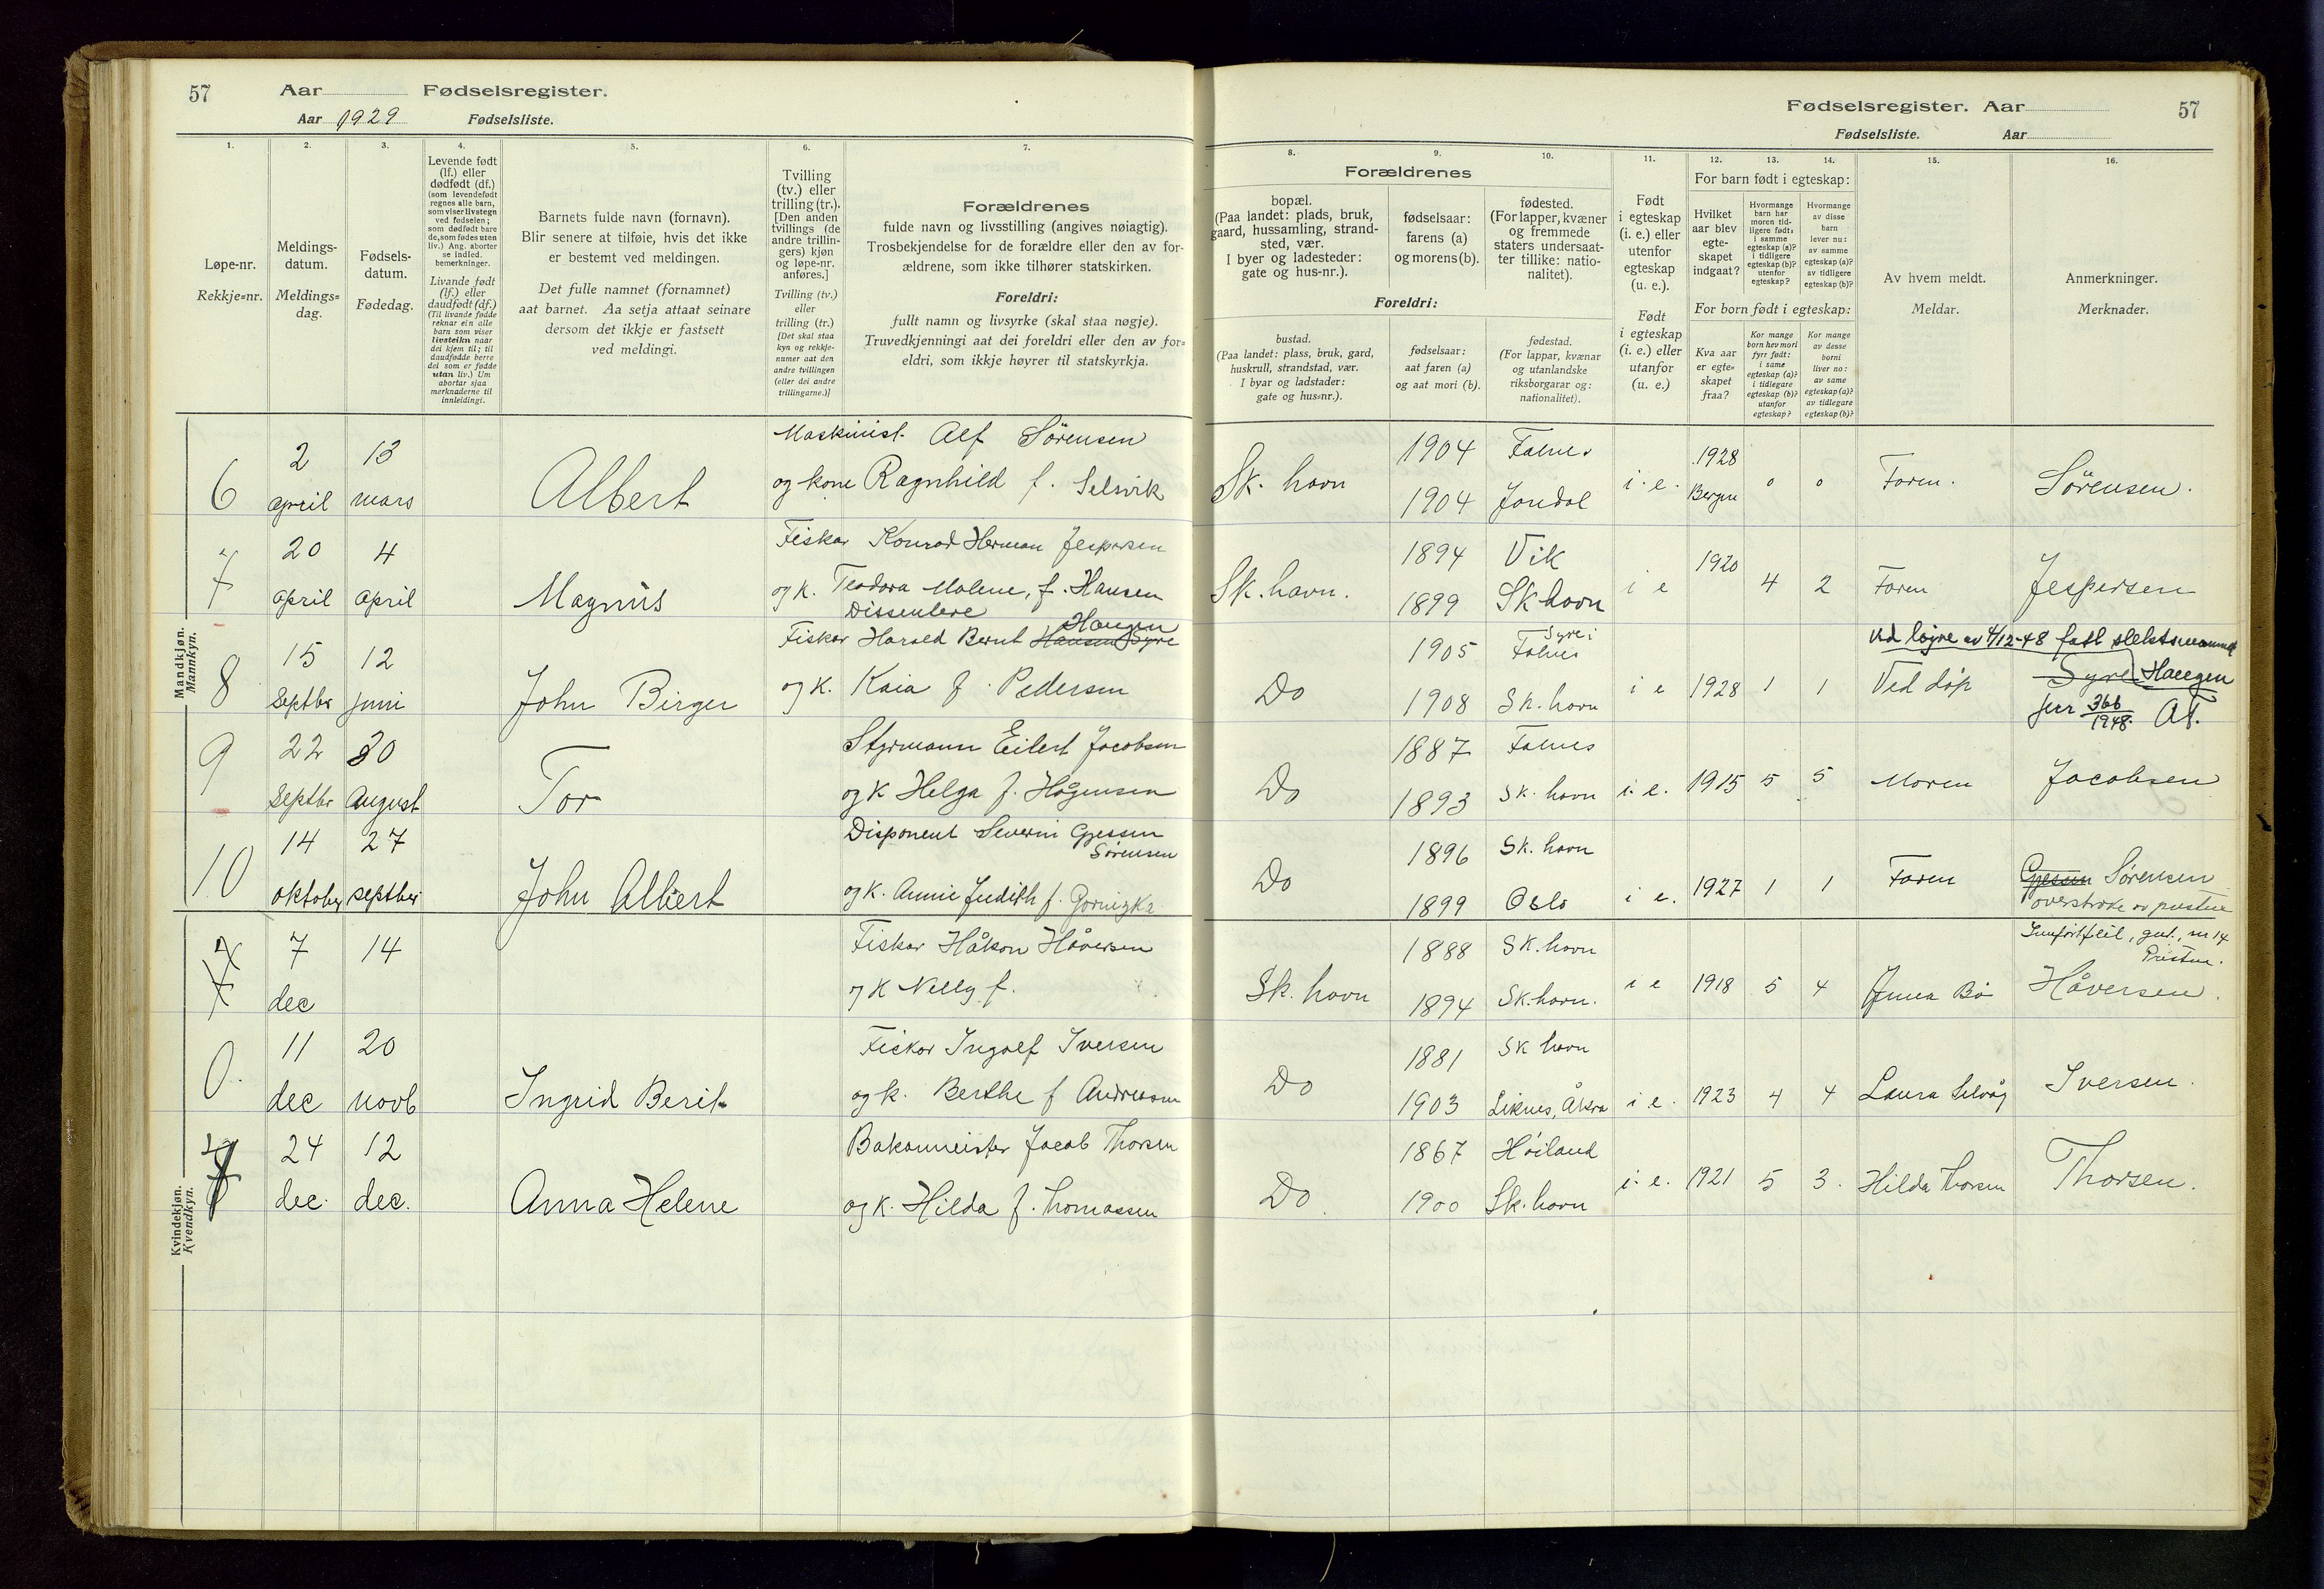 57 Aar Fødselsregister.
Aar 1929 Fødselsliste.
Fødselsregister. Aar 57
Fødselsliste. Aar
1. 2. 3. 4. 5. 6. 7.
Løpe-nr.
Rekkje=nr.
Meldings-
datum.
Meldings=
dag.
Fødsels-
datum.
Fødedag.
Levende født
(lf.) eller
dødfødt (df.)
(som levendefødt
regnes alle barn,
som viser livstegn
ved fødselen;
som dødfødt bare
de, som fødes uten
liv.) Ang. aborter
se indled.
bemerkninger.
Livande født
(lf.) eller
daudfødt (df.)
(Til livande fødde
reknar ein alle
barn som viser
livsteikn naar
dei kjem til; til
daudfødde berre
dei som er fødde
utan liv.) Um
abortar sjaa
merknaderne til
innleidingi.
Barnets fulde navn (fornavn).
Blir senere at tilføie, hvis det ikke
er bestemt ved meldingen.
Det fulle namnet (fornamnet)
aat barnet. Aa setja attaat seinare
dersom det ikkje er fastsett
ved meldingi.
Tvilling
(tv.) eller
trilling (tr.).
[Den anden
tvillings (de
andre trillin-
gers) kjøn
og løpe-nr.
anføres.]
Tvilling (tv.)
eller
trilling (tr.)
[Det skal staa
kyn og rekkje-
numer aat den
andre tvillingen
(eller dei andre
trillingarne.)]
Forældrenes
fulde navn og livsstilling (angives nøiagtig).
Trosbekjendelse for de forældre eller den av for-
ældrene, som ikke tilhører statskirken.
Foreldri:
fullt namn og livsyrke (skal staa nøgje).
Truvedkjenningi aat dei foreldri eller den av for=
eldri, som ikkje høyrer til statskyrkja.
8. 9. 10. 11. 12. 13. 14. 15. 16.
Forældrenes
bopæl.
(Paa landet: plads, bruk,
gaard, hussamling, strand-
sted, vær.
I byer og ladesteder:
gate og hus-nr.).
fødselsaar:
farens (a)
og morens (b).
fødested.
(For lapper, kvæner
og fremmede
staters undersaat-
ter tillike: natio-
nalitet).
Foreldri:
bustad.
(Paa landet: plass, bruk, gard,
huskrull, strandstad, vær.
I byar og ladstader:
gate og hus=nr.).
fødselsaar:
aat faren (a)
og aat mori (b).
fødestad.
(For lappar, kvænar
og utanlandske
riksborgarar og:
nationalitet).
Født
i egteskap
(i. e.) eller
utenfor
egteskap
(u. e.).
Født
i egteskap
(i. e.) eller
utanfor
(u. e.)
For barn født i egteskap:
Hvilket
aar blev
egte-
skapet
indgaat?
Hvormange
barn har
moren tid-
ligere født:
i samme
egteskap (a)?
i tidligere
egteskap (b)?
utenfor
egteskap?
Hvormange
av disse
barn
lever nu:
av samme
egteskap (a)?
av tidligere
egteskap (b)?
For born født i egteskap:
Kva aar
er egte=
skapet
fraa?
Kor mange
born hev mori
fyrr født:
i same
egteskap (a)?
i tidlegare
egteskap (b)?
utanfor
egteskap?
Kor mange
av desse
borni
liver no:
av same
egteskap (a)?
av tidlegare
egteskap (b)?
Av hvem meldt.
Meldar.
Anmerkninger.
Merknader.
Mandkjøn.
Mannkyn.
6 2 april 13 mars Albert
Maskinist Alf Sörensen
og kone Ragnhild f. Selsvik
Sk. havn 1904 Falnes
1904 Jondal i. e. 1928 Bergen 0 0 Faren. Sörensen.
7 20 april 4 april Magnus
Fisker Konrad Herman Jespersen
og k. Teodora Malene, f. Hansen
Dissentere
Sk. havn. 1894 Vik
1899 Sk havn i e 1920 4 2 Faren Jespersen
8 15 septbr 12 juni John Birger
Haugen
Fisker Harald Bernt Hansen Syre
og k. Kaia f. Pedersen
Do 1905 Syre i Falnes
1908 Sk. havn i e 1928 1 1 Ved dåp
Ved løyve av 4/12-48 fatt slektsnamnet
Syre Haugen
jnr 366/1948. At.
9 22 septbr 30 August Tor
Styrmann Eilert Jacobsen
og k Helga f. Hågensen
Do 1887 Falnes
1893 Sk. havn i. e. 1915 5 5 Moren Jacobsen
10 14 oktober 27 septber John Albert
Disponent Severin Gjessen
Sörensen
og k. Annie Judith f. Gornizka
Do 1896 Sk. havn
1899 Oslo i e. 1927 1 1 Faren Gjessen Sörensen
Kvindekjøn.
Kvendkyn.
7 7 dec 14
Fisker Håkon Håversen
og k Nelly f.
Sk. havn 1888 Sk. havn
1894 Sk. havn. i e 1918 5 4 Bö Håversen.
0. 11 dec 20 novb Ingrid Berit
Fisker Ingolf Iversen
og k. Berthe f Andreasen
Do 1881 Sk havn
1903 Liknes, Åkra i e. 1923 4 4 Laura Selvåg Iversen.
24 dec. 12 dec. Anna Helene
Bakermeister Jacob Thorsen
og k. Hilda f. Thomassen
Do. 1867 Höiland
1900 Sk. havn i. e. 1921 5 3. Hilda Thorsen Thorsen.